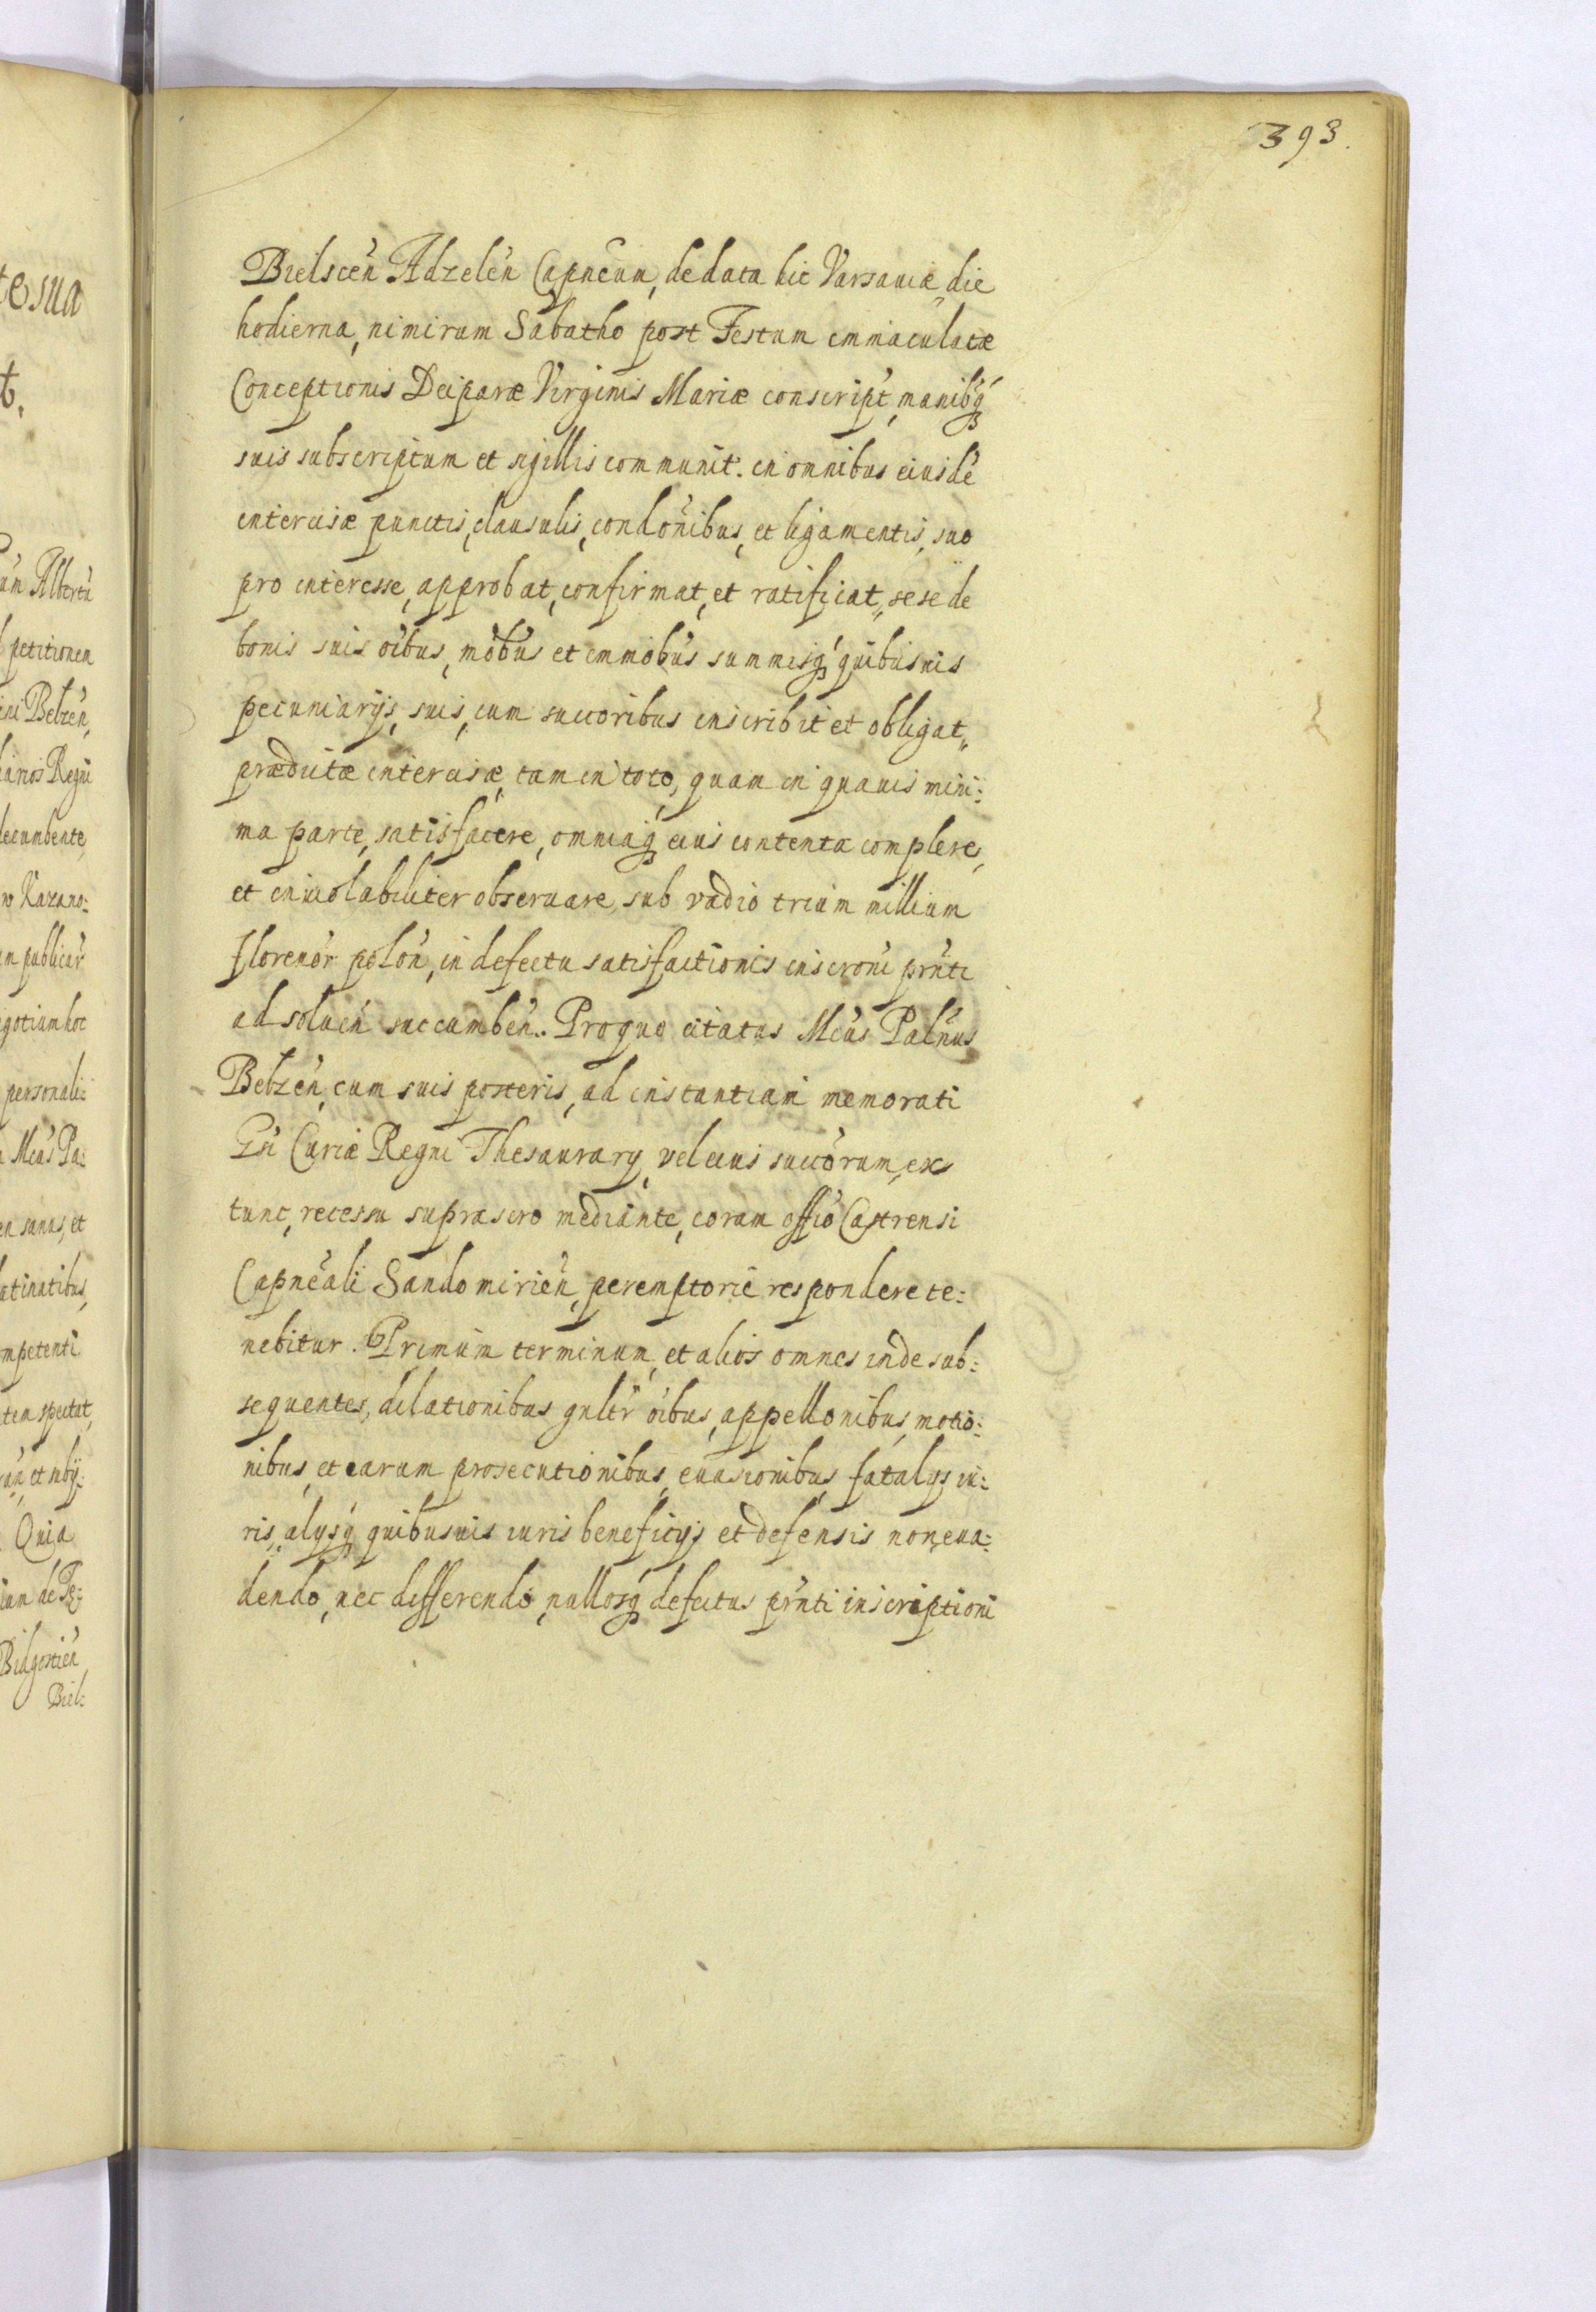 393.
Bielscen̄ Adzelen̄ Capneum, de data hic Varsauiæ die
hodierna, nimirum Sabatho post Festum immaculatæ
Conceptionis Deiparæ Virginis Mariæ conscript, manibq́
suis subscriptum et sigillis communit. in omnibus eiusdē
intercisæ punctis, clausulis, condōnibus, et ligamentis, suo
pro interesse, approbat, confirmat, et ratificat, sese de
bonis suis oībus, mobūs et immobūs summisq́ quibusuis
pecuniarijs, suis, cum succoribus inscribit et obligat,
prædictæ intercisæ, tam in toto, quam in quauis mini:
ma parte, satisfacere, omniaq́ eius contenta complere,
et inuiolabiliter obseruare, sub vadio trium millium
florenor̄ polon̄, in defectu satisfactionis inscroni prn̄ti
ad soluen̄ succumben̄. Pro quo citatus Mcūs Paln̄us
Belzen̄, cum suis posteris, ad instantiam memorati
Gsi Curiæ Regni Thesaurary, vel eius succōrum, ex
tunc, recessu suprascro mediante, coram offio Castrensi
Capneāli Sandomirien̄, peremptorie respondere te:
nebitur. Primum terminum, et alios omnes inde sub:
sequentes, dilationibus gnlīr oībus, appellonibus, motio:
nibus, et earum prosecutionibus, euasionibus, fatalys iu:
ris, alysq́ quibusuis iuris beneficijs et defensis non eua:
dendo, nec differendo, nullosq́ defectus prn̄ti inscriptioni
te sua
t.
um Albertū
petitionem
ini Belzen̄,
Regni
decumbente
Kazano:
m publicar̄
gotium hoc
personali:
Mcūs Pa:
en sanus, et
atinatibus,
mpetenti
tem spectat,
Quia
Bidgostien̄
Biel: